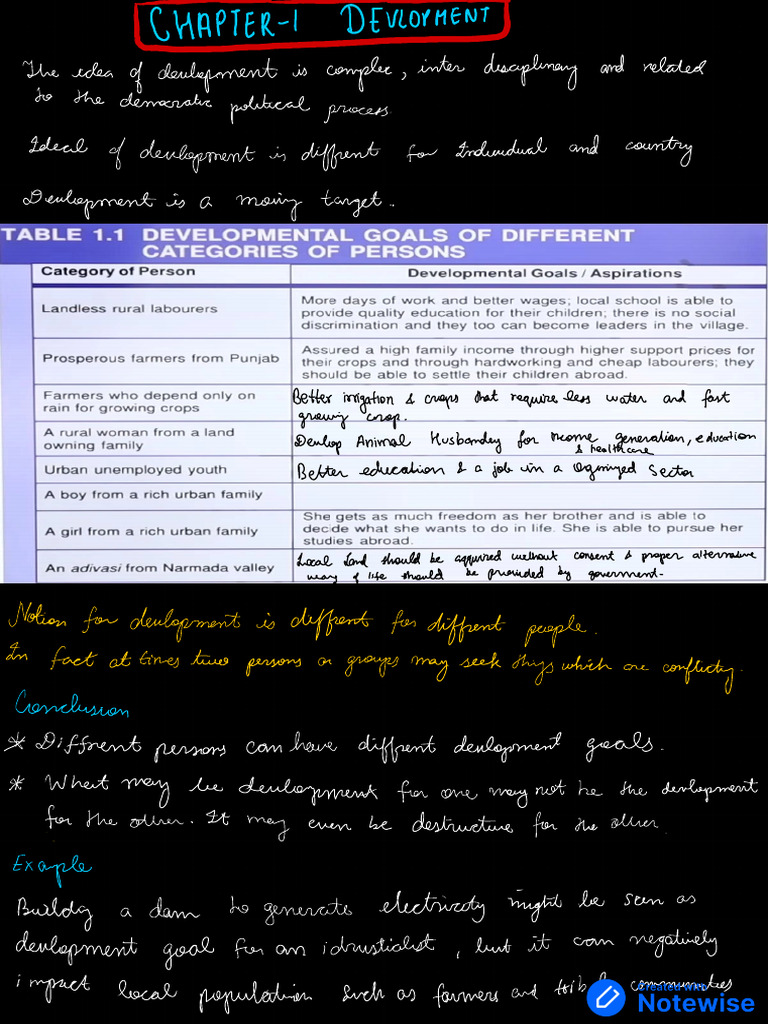 CHAPTER-1 DEVLOPMENT
The idea of devlopment is complec, inter disciplinary and related
to the democratic political process
Ideal of devlopment is diffrent for Individual and country
Devlopment is a moving target.
TABLE 1.1 DEVELOPMENTAL GOALS OF DIFFERENT
CATEGORIES OF PERSONS
Category of Person
Developmental Goals / Aspirations
Landless rural labourers
More days of work and better wages; local school is able to
provide quality education for their children; there is no social
discrimination and they too can become leaders in the village.
Prosperous farmers from Punjab
Assured a high family income through higher support prices for
their crops and through hardworking and cheap labourers; they
should be able to settle their children abroad.
Farmers who depend only on
rain for growing crops
Better irrigation & crops that require less water and fast
growing crop.
A rural woman from a land
owning family
Devlop Animal Husbandry for income generation, education
& healthcare
Urban unemployed youth
Better education & a job in a Organized Sector
A boy from a rich urban family
A girl from a rich urban family
She gets as much freedom as her brother and is able to
decide what she wants to do in life. She is able to pursue her
studies abroad.
An adivasi from Narmada valley
Local land should be acquired without consent & proper alternative
way of life should be provided by goverment.
Notion for devlopment is diffrent for diffrent people.
In fact at times two persons or groups may seek things which are conflicting.
Conclusion
* Diffrent persons can have diffrent devlopment goals.
* What may be devlopment for one may not be the devlopment
for the other. It may even be destructive for the other
Example
Building a dam to generate electricity might be seen as
devlopment goal for an idrustialist, but it can negatively
impact local population such as farmers and tribal communities
Created with
Notewise